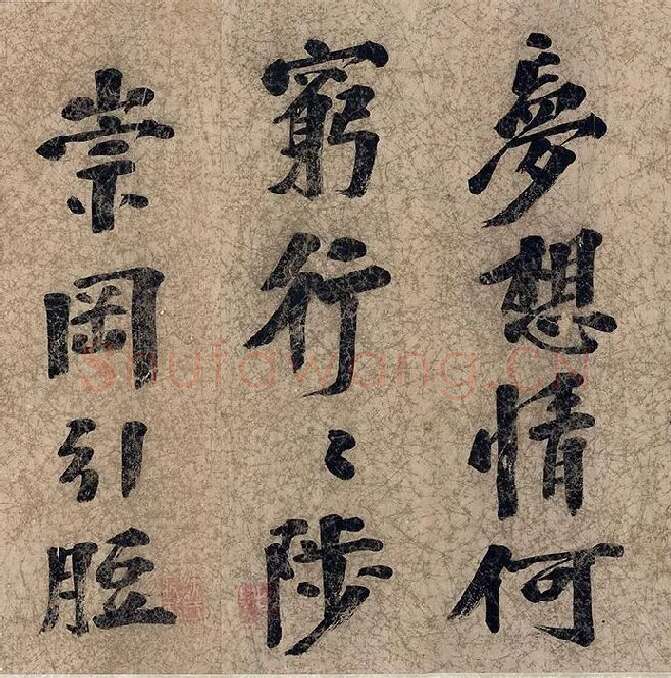 夢想情何
窮行〻陟
崇岡引脰
shufawang.cn